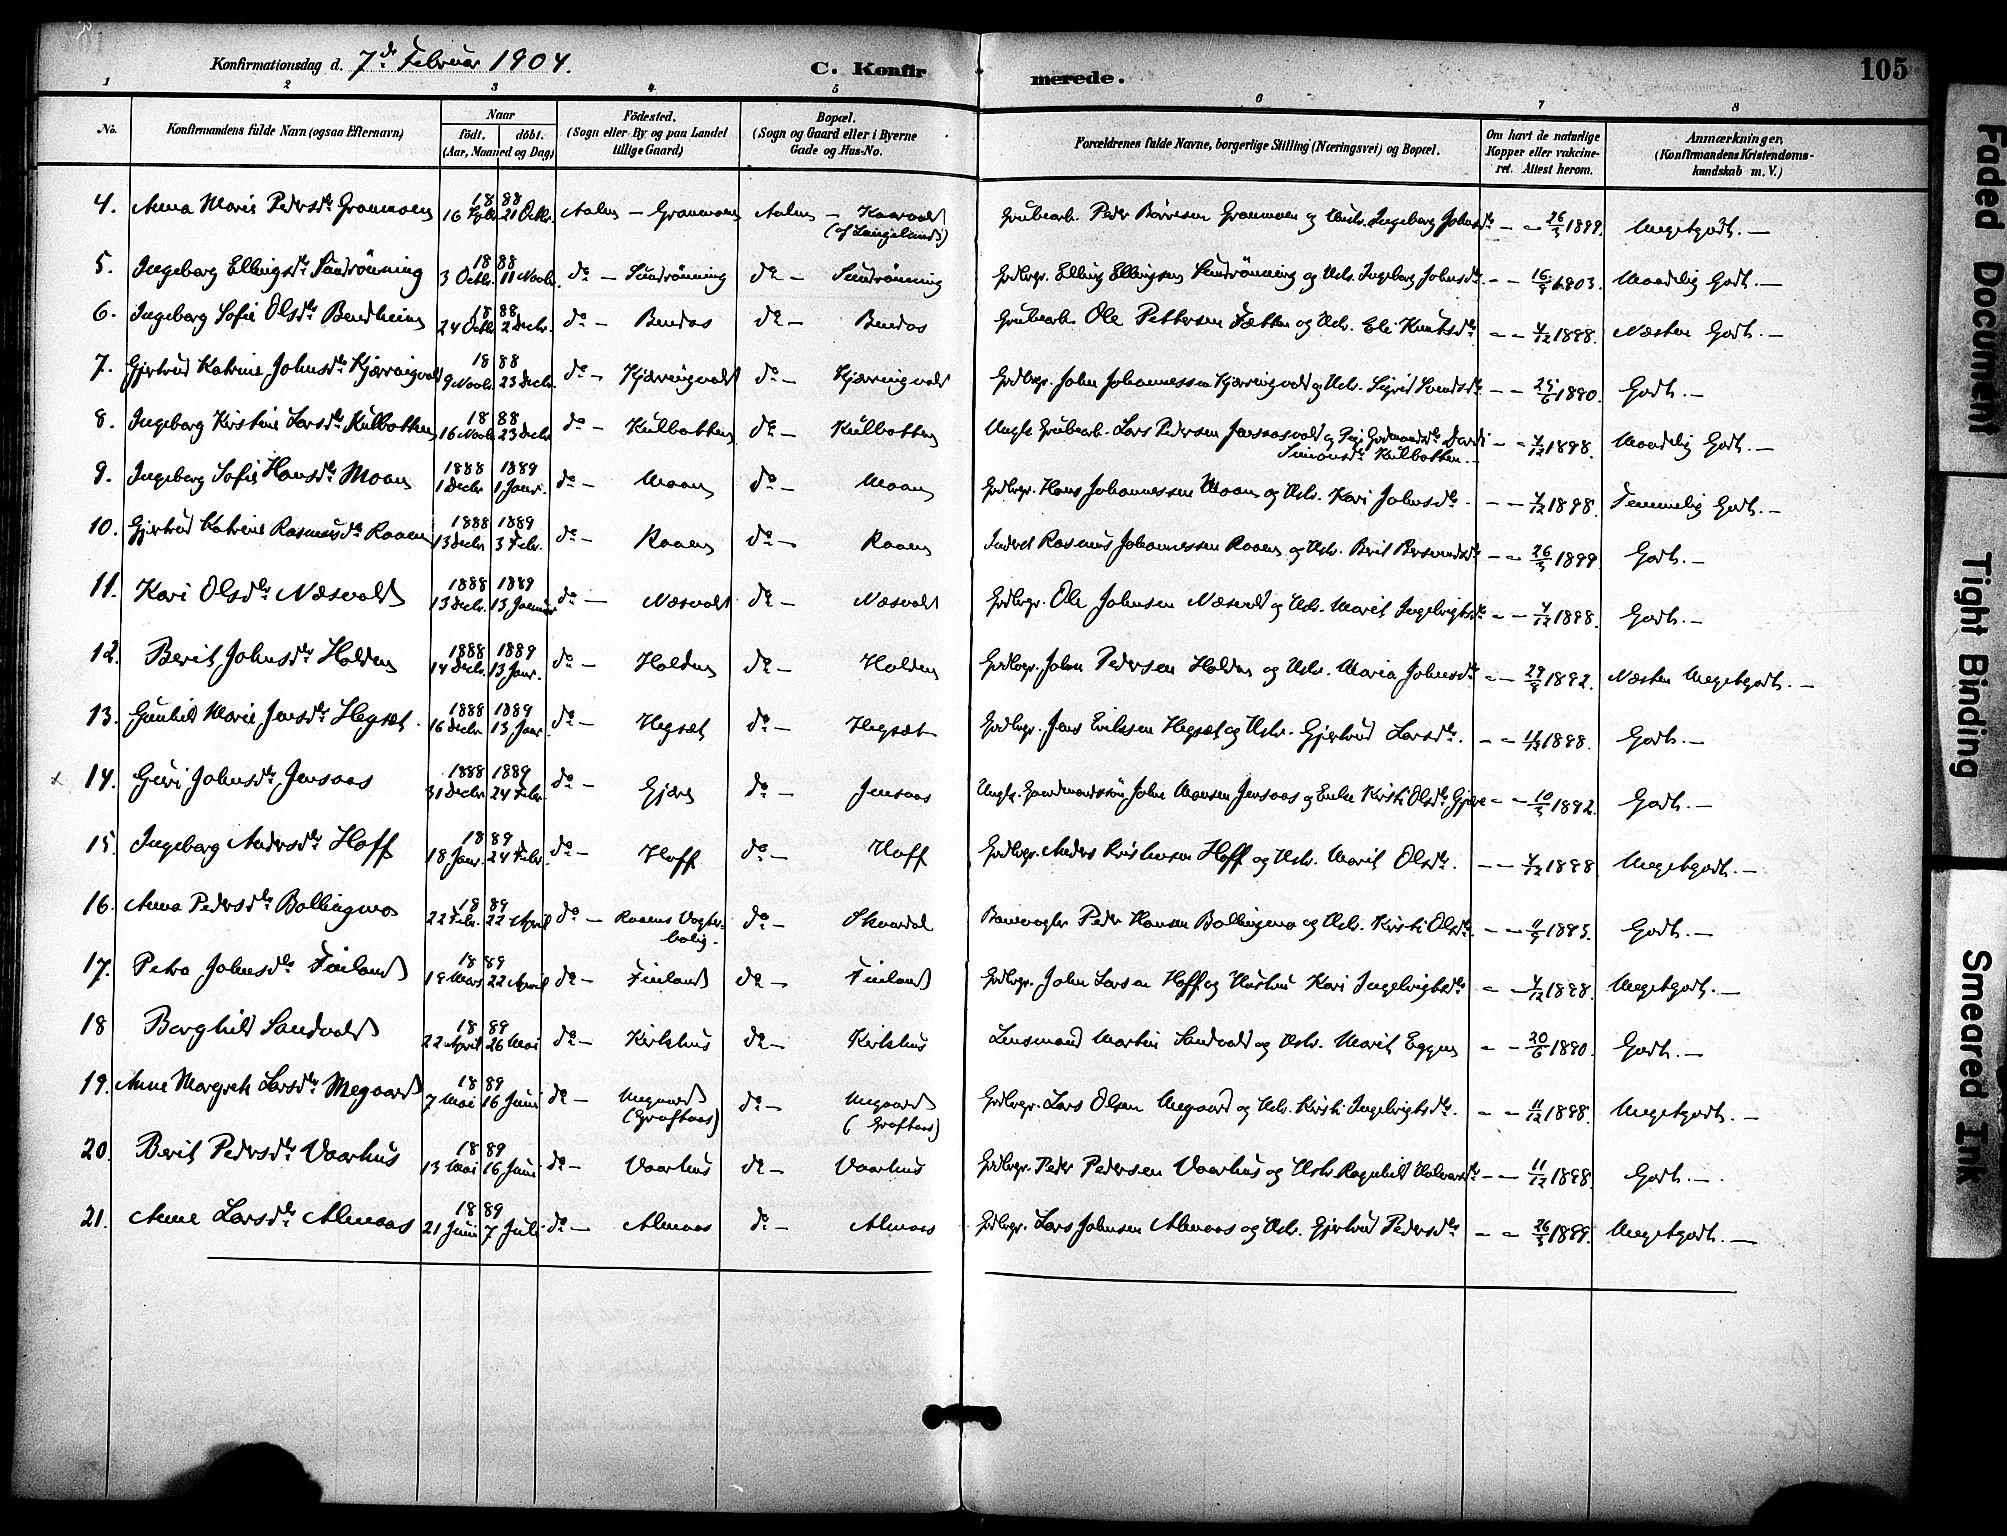 Konfirmationsdag d. 7de Februar 1904. C. Konfir merede. 105
1 2 3 4 5 6 7 8
No. Konfirmandens fulde Navn (ogsaa Efternavn) Naar födt. döbt. (Aar, Maaned og Dag) Födested. (Sogn eller By og paa Landet tillige Gaard) Bopæl. (Sogn og Gaard eller i Byerne Gade og Hus-No. Forældrenes fulde Navne, borgerlige Stilling (Næringsvei) og Bopæl. Om havt de naturlige Kopper eller vakcineret. Attest herom. Anmærkninger, (Konfirmandens Kristendomskundskab m. V.)
4. Anna Marie Pedersdtr Granmoen 1888 16 Sptbr. 21 Octbr. Aalen – Granmoen Aalen – Kaarvald (af Langeland) Grubearb. Peder Börresen Granmoen og Hustr. Ingeborg Johnsdtr – – 26/5 1899. Megetgodt. –
5. Ingeborg Ellingsdtr Sundrönning 1888 3 Octbr. 11 Novbr. do – Sundrönning do – Sundrönning Gdbrgr. Elling Ellingsen Sundrönning og Hstr. Ingeborg Johnsdtr. – – 16/5 1903. Maadelig Godt. –
6. Ingeborg Sofie Olsdtr Bendheim 1888 24 Octbr. 2 Decbr. do – Bendos do – Bendos Grubearb. Ole Pettersen Tætten og Hstr. Eli Knutsdtr – – 4/12 1898. Næsten Godt. –
7. Gjertrud Katrine Johnsdtr Kjærringvold 1888 9 Novbr. 23 Decbr. do – Kjærringvold do – Kjærringvold Gdbrgr. John Johannessen Kjærringvold og Hstr. Sigrid Svendsdtr – – 25/6 1890. Godt. –
8. Ingeborg Kirstine Larsdtr Kulbotten 1888 16 Novbr. 23 Decbr. do – Kulbotten do – Kulbotten Ungk. Grubearb. Lars Pedersen Jensaasvold og Pige Dordi Simonsdtr Kulbotten. – – 4/12 1898. Maadelig Godt. –
9. Ingeborg Sofie Hansdtr Moan 1888 1 Decbr. 1889 1 Janr. do – Moan do – Moan Gdbrgr. Hans Johannessen Moan og Hstr. Kari Johnsdtr. – – 4/12 1898. Temmelig Godt. –
10. Gjertrud Katrine Rasmusdtr Raaen 1888 13 Decbr. 1889 3 Febr. do – Raaen do – Raaen Inderst Rasmus Johannessen Raaen og Hstr. Berit – – 26/5 1899 Godt. –
11. Kari Olsdtr Næsvold 1888 13 Decbr. 1889 13 Januar do – Næsvold do – Næsvold Gdbrgr. Ole Johnsen Næsvold og Hstr. Marit Ingebrigtsdtr – – 4/12 1898. Godt. –
12. Berit Johnsdtr Holden 1888 14 Decbr. 1889 13 Janr. do – Holden do – Holden Gdbrgr. John Pedersen Holden og Hstr. Maria Johnsdtr – – 29/8 1892. Næsten Megetgodt. –
13. Gunhild Marie Jensdtr Hegsæt. 1888 16 Decbr. 1889 13 Janr. do – Hegsæt do – Hegsæt Gdbrgr. Jens Eriksen Hegsæt og Hstr. Gjertrud Larsdtr. – – 11/12 1898. Godt. –
x 14. Guri Johnsdtr Jensaas 1888 31 Decbr. 1889 24 Febr. do – Gjære do – Jensaas Ungk. Gaardmandssön John Monsen Jensaas og Enke Kirsti Olsdtr Gjære – – 10/5 1892. Godt. –
15. Ingeborg Andersdtr Hoff 1889 18 Janr. 24 Febr. do – Hoff do – Hoff Gdbrgr. Anders Kristensen Hoff og Hstr. Marit Olsdtr. – – 4/12 1898 Megetgodt. –
16. Anna Pedersdtr Bollingmo 1889 22 Febr. 22 April do – Raaens Vogterbolig. do – Skaardal Banevogter Peder Hansen Bollingmo og Hstr. Kirsti Olsdtr. – – 11/9 1895. Godt. –
17. Petra Johnsdtr Finland 1889 19 Mars 22 April do – Finland do – Finland Gdbrgr. John Larsen Hoff og Hustru Kari Ingebrigtsdtr – – 4/12 1898. Megetgodt. –
18 Borghild Sandvold 1889 22 April 26 Mai do – Kirkhus do – Kirkhus Lensmand Martin Sandvold og Hstr. Marit Eggen – – 20/6 1890. Godt. –
19. Anne Margrete Larsdtr Megaard 1889 7 Mai 16 Juni do – Megaard (Graftaas) do – Megaard (Graftaas) Gdbrgr. Lars Olsen Megaard og Hstr. Kirsti Ingebrigtsdtr. – – 11/12 1898. Megetgodt. –
20. Berit Pedersdtr Vaarhus 1889 13 Mai 16 Juni do – Vaarhus do – Vaarhus Gdbrgr. Peder Pedersen Vaarhus og Hstr. Ragnhild Halvorsdtr – – 11/12 1898. Godt. –
21. Anne Larsdtr Almaas 1889 21 Juni 7 Juli do – Almaas do – Almaas Gdbrgr. Lars Johnsen Almaas og Hstr. Gjertrud Pedersdtr – – 26/5 1899. Megetgodt. –
Faded Document
Tight Binding
Smeared Ink